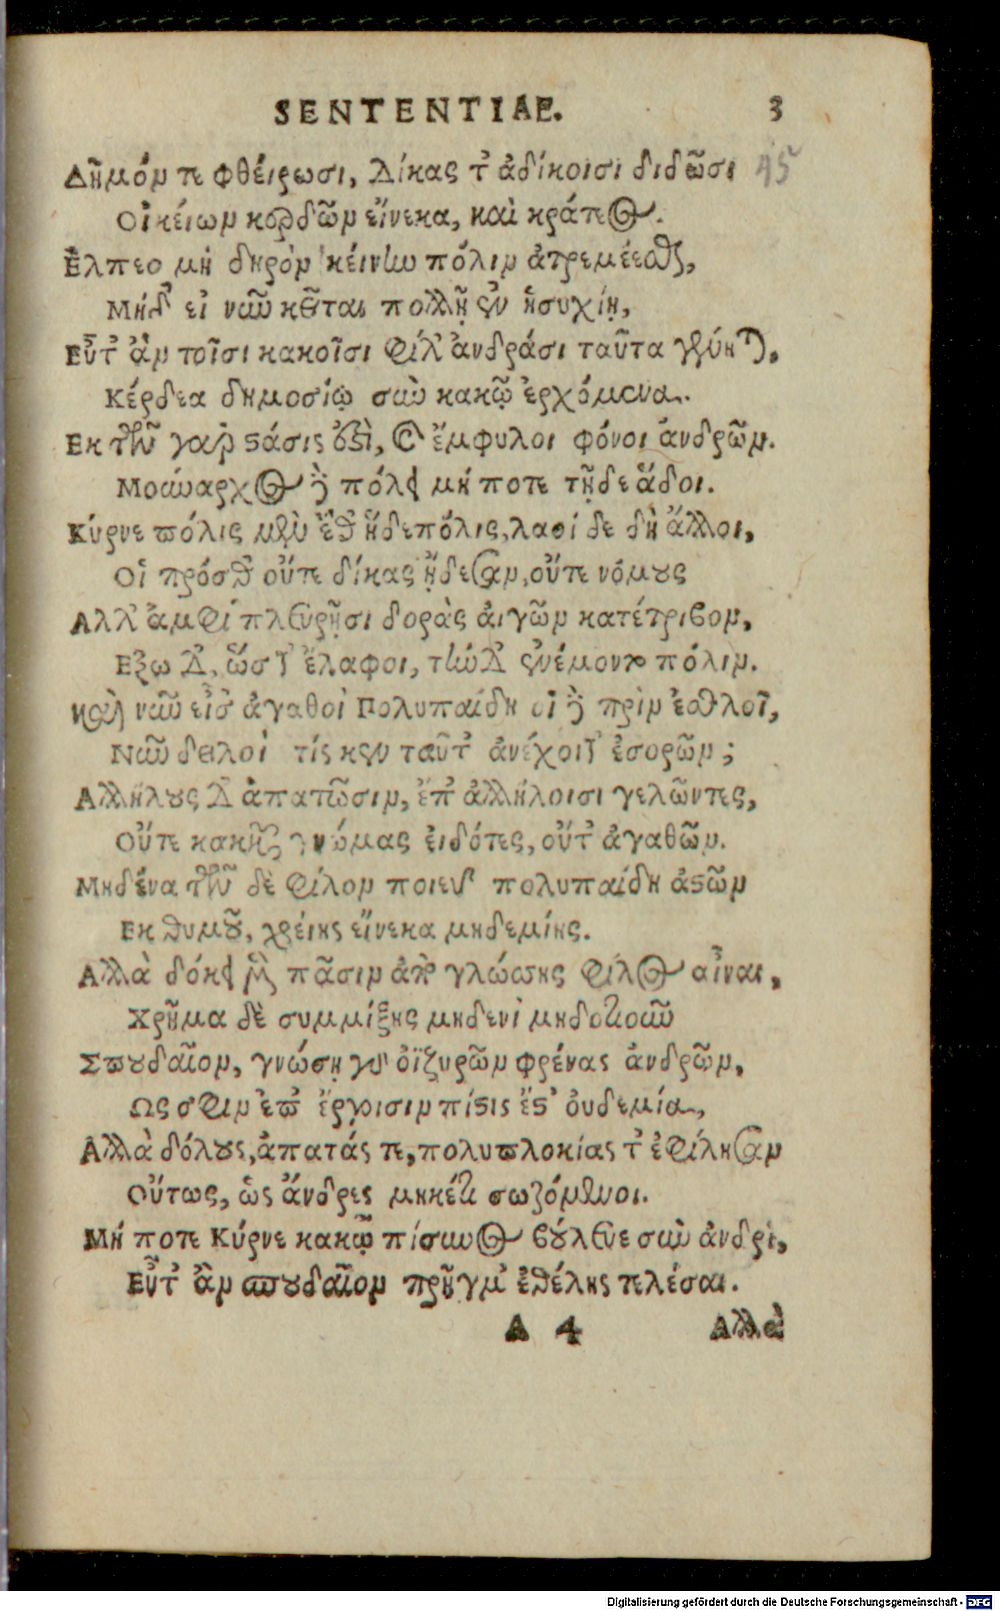 SENTENTIAE. 3
Δῆμόν τε φθείρωσι, δίκας τ᾽ ἀδίκοισι διδῶσι 45
Οἰκείων κερδῶν εἵνεκα, καὶ κράτεος.
Ἔλπεο μὴ δηρὸν κείνην πόλιν ἀτρεμέεσθαι,
Μήδ᾽ εἰ νῦν κεῖται πολλῇ ἐν ἡσυχίῃ,
Εὖτ᾽ ἂν τοῖσι κακοῖσι φίλ᾽ ἀνδράσι ταῦτα γένηται,
Κέρδεα δημοσίῳ σὺν κακῷ ἐρχόμενα.
Εκ τῶν γὰρ στάσις ἐστὶ, καὶ ἔμφυλοι φόνοι ἀνδρῶν.
Μούναρχος δὲ πόλει μή ποτε τῇδε ἅδοι.
Κύρνε πόλις μὲν ἔθ᾽ ἥδε πόλις, λαοί δε δὴ ἄλλοι,
Οἳ πρόσθ᾽ οὔτε δίκας ᾔδεσαν, οὔτε νόμους
Αλλ᾽ ἀμφὶ πλευρῇσι δορὰς αἰγῶν κατέτριβον,
Εξω δ᾽, ὥστ᾽ ἔλαφοι, τήνδ᾽ ἐνέμοντο πόλιν.
καὶ νῦν εἰσ᾽ ἀγαθοὶ Πολυπαίδη οἳ δὲ πρὶν ἐσθλοὶ,
Νῦν δειλοὶ τίς κεν ταῦτ᾽ ἀνέχοιτ᾽ ἐσορῶν;
Αλλήλους δ᾽ ἀπατῶσιν, ἐπ᾽ ἀλλήλοισι γελῶντες,
Οὔτε κακῶν γνώμας εἰδότες, οὔτ᾽ ἀγαθῶν.
Μηδένα τῶν δὲ φίλον ποιεῦ πολυπαίδη ἀστῶν
Εκ θυμοῦ, χρείης εἵνεκα μηδεμίης.
Αλλὰ δόκει μὲν πᾶσιν ἀπὸ γλώσσης φίλος εἶναι,
Χρῆμα δὲ συμμίξης μηδενὶ μηδοτιοῦν
Σπουδαῖον, γνώσῃ γὰρ ὀϊζυρῶν φρένας ἀνδρῶν,
Ως σφιν ἐπ᾽ ἔργοισιν πίστις ἔστ᾽ οὐδεμία,
Αλλὰ δόλους, ἀπατάς τε, πολυπλοκίας τ᾽ ἐφίλησαν
Οὕτως, ὡς ἄνδρες μηκέτι σωζόμενοι.
Μή ποτε Κύρνε κακῷ πίσυνος βούλευε σὺν ἀνδρὶ,
Εὖτ᾽ ἂν σπουδαῖον πρῆγμ᾽ ἐθέλῃς τελέσαι.
A 4 Αλλὰ
Digitalisierung gefördert durch die Deutsche Forschungsgemeinschaft - DFG